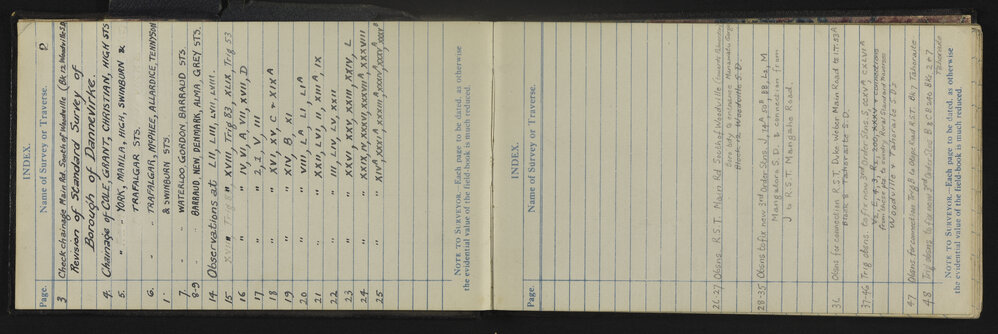 INDEX.
Page. Name of Survey or Traverse. D
3 Check chainage Main Rd. South of Woodville (Bk 12 Woodville S.D.)
Revision of Standard Survey of
Borough of Dannevirke.
4. Chainage of COLE, GRANT, CHRISTIAN, HIGH STS
5. " YORK, MANILA, HIGH, SWINBURN &
TRAFALGAR STS.
6. " TRAFALGAR, McPHEE, ALLARDICE, TENNYSON
& SWINBURN STS.
7. " WATERLOO, GORDON, BARRAUD STS.
8-9 " BARRAUD, NEW, DENMARK, ALMA, GREY STS.
14 Observations at LII, LIII, LVII, LVIII.
15 " XVIII, Trig 83, XLIX, Trig 53
16 " " IV, VI, A, VII, XVII, D
17 " " 2, I, V, III
18 " " XVI, XV, C & XIXA
19 " " XIV, B, XI
20 " " VIII, LA, LI, LIA
21 " " XXII, LVI, II, XIIIA, IX
22 " " III, LIV, LV, XXII
23 " " XXVI, XXV, XXIII, XXIV, L
24 " " XXIX, IV, XXXVI, XXXVIIIA, XXXVIII
25 " " XIVA,
NOTE TO SURVEYOR.—Each page to be dated, as otherwise
the evidential value of the field-book is much reduced.
INDEX.
Page. Name of Survey or Traverse.
26-27 Obsns. R.S.T. Main Rd South of Woodville
Block 12 Woodville S.D.
28-35 Obsns to fix new 3rd Order Stns. J, 14A, 50B, BB, L2, M
Mangahao S.D. & connection from
J to R.S.T. Mangahao Road.
36 Obsns for connection R.S.T. Duke Weber Main Road to IT. 53A
Block 8 Tahoraite S.D.
37-46 Trig obsns. to fix new 3rd Order Stns
from these pts to
Woodville & Tahoraite S.D.s
47 Obsns for connection Trig B to Otope Road R.S.T. Blk 7 Tahoraite
48 Trig obsns to fix new 3rd Order Stns
Tahoraite
NOTE TO SURVEYOR.—Each page to be dated, as otherwise
the evidential value of the field-book is much reduced.